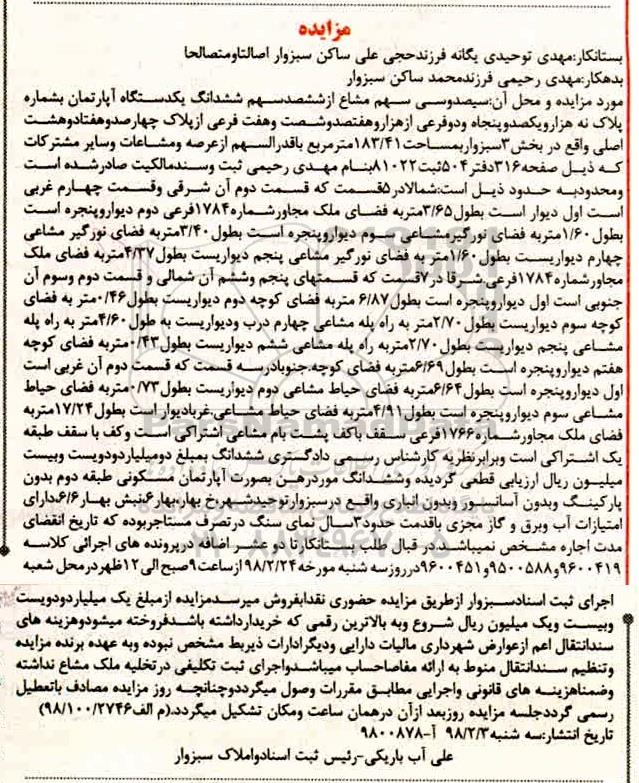 مزایده
بستانکار:مهدی توحیدی یگانه فرزندحجی علی ساکن سبزوار اصالتاومتصالحا
بدهکار:مهدی رحیمی فرزندمحمد ساکن سبزوار
مورد مزایده و محل آن:سیصدوسی سهم مشاع ازششصدسهم ششدانگ یکدستگاه آپارتمان بشماره
پلاک نه هزارویکصدوپنجاه ودوفرعی ازهزاروهفتصدوشصت وهفت فرعی ازپلاک چهارصدوهفتادوهشت
اصلی واقع در بخش۳سبزواربمساحت۱۸۳/۴۱مترمربع باقدرالسهم ازعرصه ومشاعات وسایر مشترکات
که ذیل صفحه۳۱۶دفتر۵۰۴ثبت۸۱۰۲۲بنام مهدی رحیمی ثبت وسندمالکیت صادرشده است
ومحدودبه حدود ذیل است:شمالادر۵قسمت که قسمت دوم آن شرقی وقسمت چهارم غربی
است اول دیوار است بطول۳/۶۵متربه فضای ملک مجاورشماره۱۷۸۴فرعی دوم دیواروپنجره است
بطول۱/۶۰متربه فضای نورگیرمشاعی سوم دیواروپنجره است بطول۳/۴۰متربه فضای نورگیر مشاعی
چهارم دیواریست بطول۱/۶۰متر به فضای نورگیر مشاعی پنجم دیواریست بطول۴/۳۷متربه فضای ملک
مجاورشماره۱۷۸۴فرعی.شرقا در۷قسمت که قسمتهای پنجم وششم آن شمالی و قسمت دوم وسوم آن
جنوبی است اول دیواروپنجره است بطول۶/۸۷ متربه فضای کوچه دوم دیواریست بطول۰/۴۶متر به فضای
کوچه سوم دیواریست بطول۲/۷۰متر به راه پله مشاعی چهارم درب ودیواریست به طول۴/۶۰متر به راه پله
مشاعی پنجم دیواریست بطول۲/۷۰متربه راه پله مشاعی ششم دیواریست بطول۰/۴۳متربه فضای کوچه
هفتم دیواروپنجره است بطول۶/۶۹متربه فضای کوچه.جنوبادرسه قسمت که قسمت دوم آن غربی است
اول دیواروپنجره است بطول۶/۶۴متربه فضای حیاط مشاعی دوم دیواریست بطول۰/۷۳متربه فضای حیاط
مشاعی سوم دیواروپنجره است بطول۴/۹۱متربه فضای حیاط مشاعی.غربادیوار است بطول۱۷/۲۴متربه
فضای ملک مجاورشماره۱۷۶۶فرعی سقف باکف پشت بام مشاعی اشتراکی است وکف با سقف طبقه
یک اشتراکی است وبرابرنظریه کارشناس رسمی دادگستری ششدانگ بمبلغ دومیلیاردودویست وبیست
میلیون ریال ارزیابی قطعی گردیده وششدانگ موردرهن بصورت آپارتمان مسکونی طبقه دوم بدون
پارکینگ وبدون آسانسور وبدون انباری واقع درسبزوارتوحیدشهرنخ بهاربهار۶نبش بهار۶/۶،دارای
امتیازات آب وبرق و گاز مجزی باقدمت حدود۳سال نمای سنگ درتصرف مستاجربوده که تاریخ انقضای
مدت اجاره مشخص نمیباشددر قبال طلب بستانکارتا دو عشر اضافه درپرونده های اجرائی کلاسه
۹۶۰۰۴۱۹و۹۵۰۰۵۸۸و۹۶۰۰۴۵۱درروزسه شنبه مورخه۹۸/۲/۲۴ ازساعت۹صبح الی۱۲ظهردرمحل شعبه
اجرای ثبت اسنادسبزوار ازطریق مزایده حضوری نقدابفروش میرسدمزایده ازمبلغ یک میلیاردودویست
وبیست ویک میلیون ریال شروع وبه بالاترین رقمی که خریدارداشته باشدفروخته میشودوهزینه های
سندانتقال اعم ازعوارض شهرداری مالیات دارایی ودیگرادارات ذیربط مشخص نبوده وبه عهده برنده مزایده
وتنظیم سندانتقال منوط به ارائه مفاصاحساب میباشدواجرای ثبت تکلیفی درتخلیه ملک مشاع نداشته
وضمناهزینه های قانونی واجرایی مطابق مقررات وصول میگرددوچنانچه روز مزایده مصادف باتعطیل
رسمی گرددجلسه مزایده روزبعد ازآن درهمان ساعت ومکان تشکیل میگردد.(م الف۹۸/۱۰۰/۲۷۴۶)
تاریخ انتشار:سه شنبه۹۸/۲/۳ آ-۹۸۰۰۸۷۸
علی آب باریکی-رئیس ثبت اسنادواملاک سبزوار